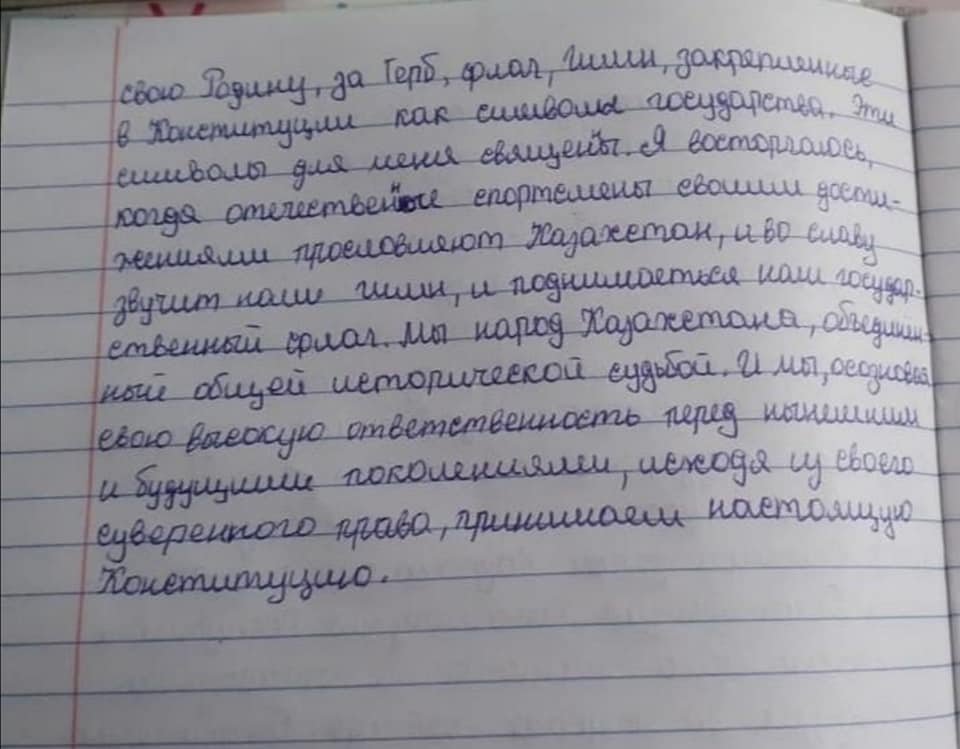 свою Родину, за Герб, флаг, Гимн, закреплянные
в Конституции как символы государства. Эти
символы для меня священы. Я восторгаюсь,
когда отечественные спортсмены своими дости-
жениями прославляют Казахстан, и во славу
звучит наш гимн, и поднимаеться наш государ-
ственный флаг. Мы народ Казахстана, объединён-
ный общей исторической судьбой. И мы, осознавая
свою высокую ответственность перед нынешним
и будущими поколениями, исходя из своего
суверенного права, принимаем настоящую
Конституцию.